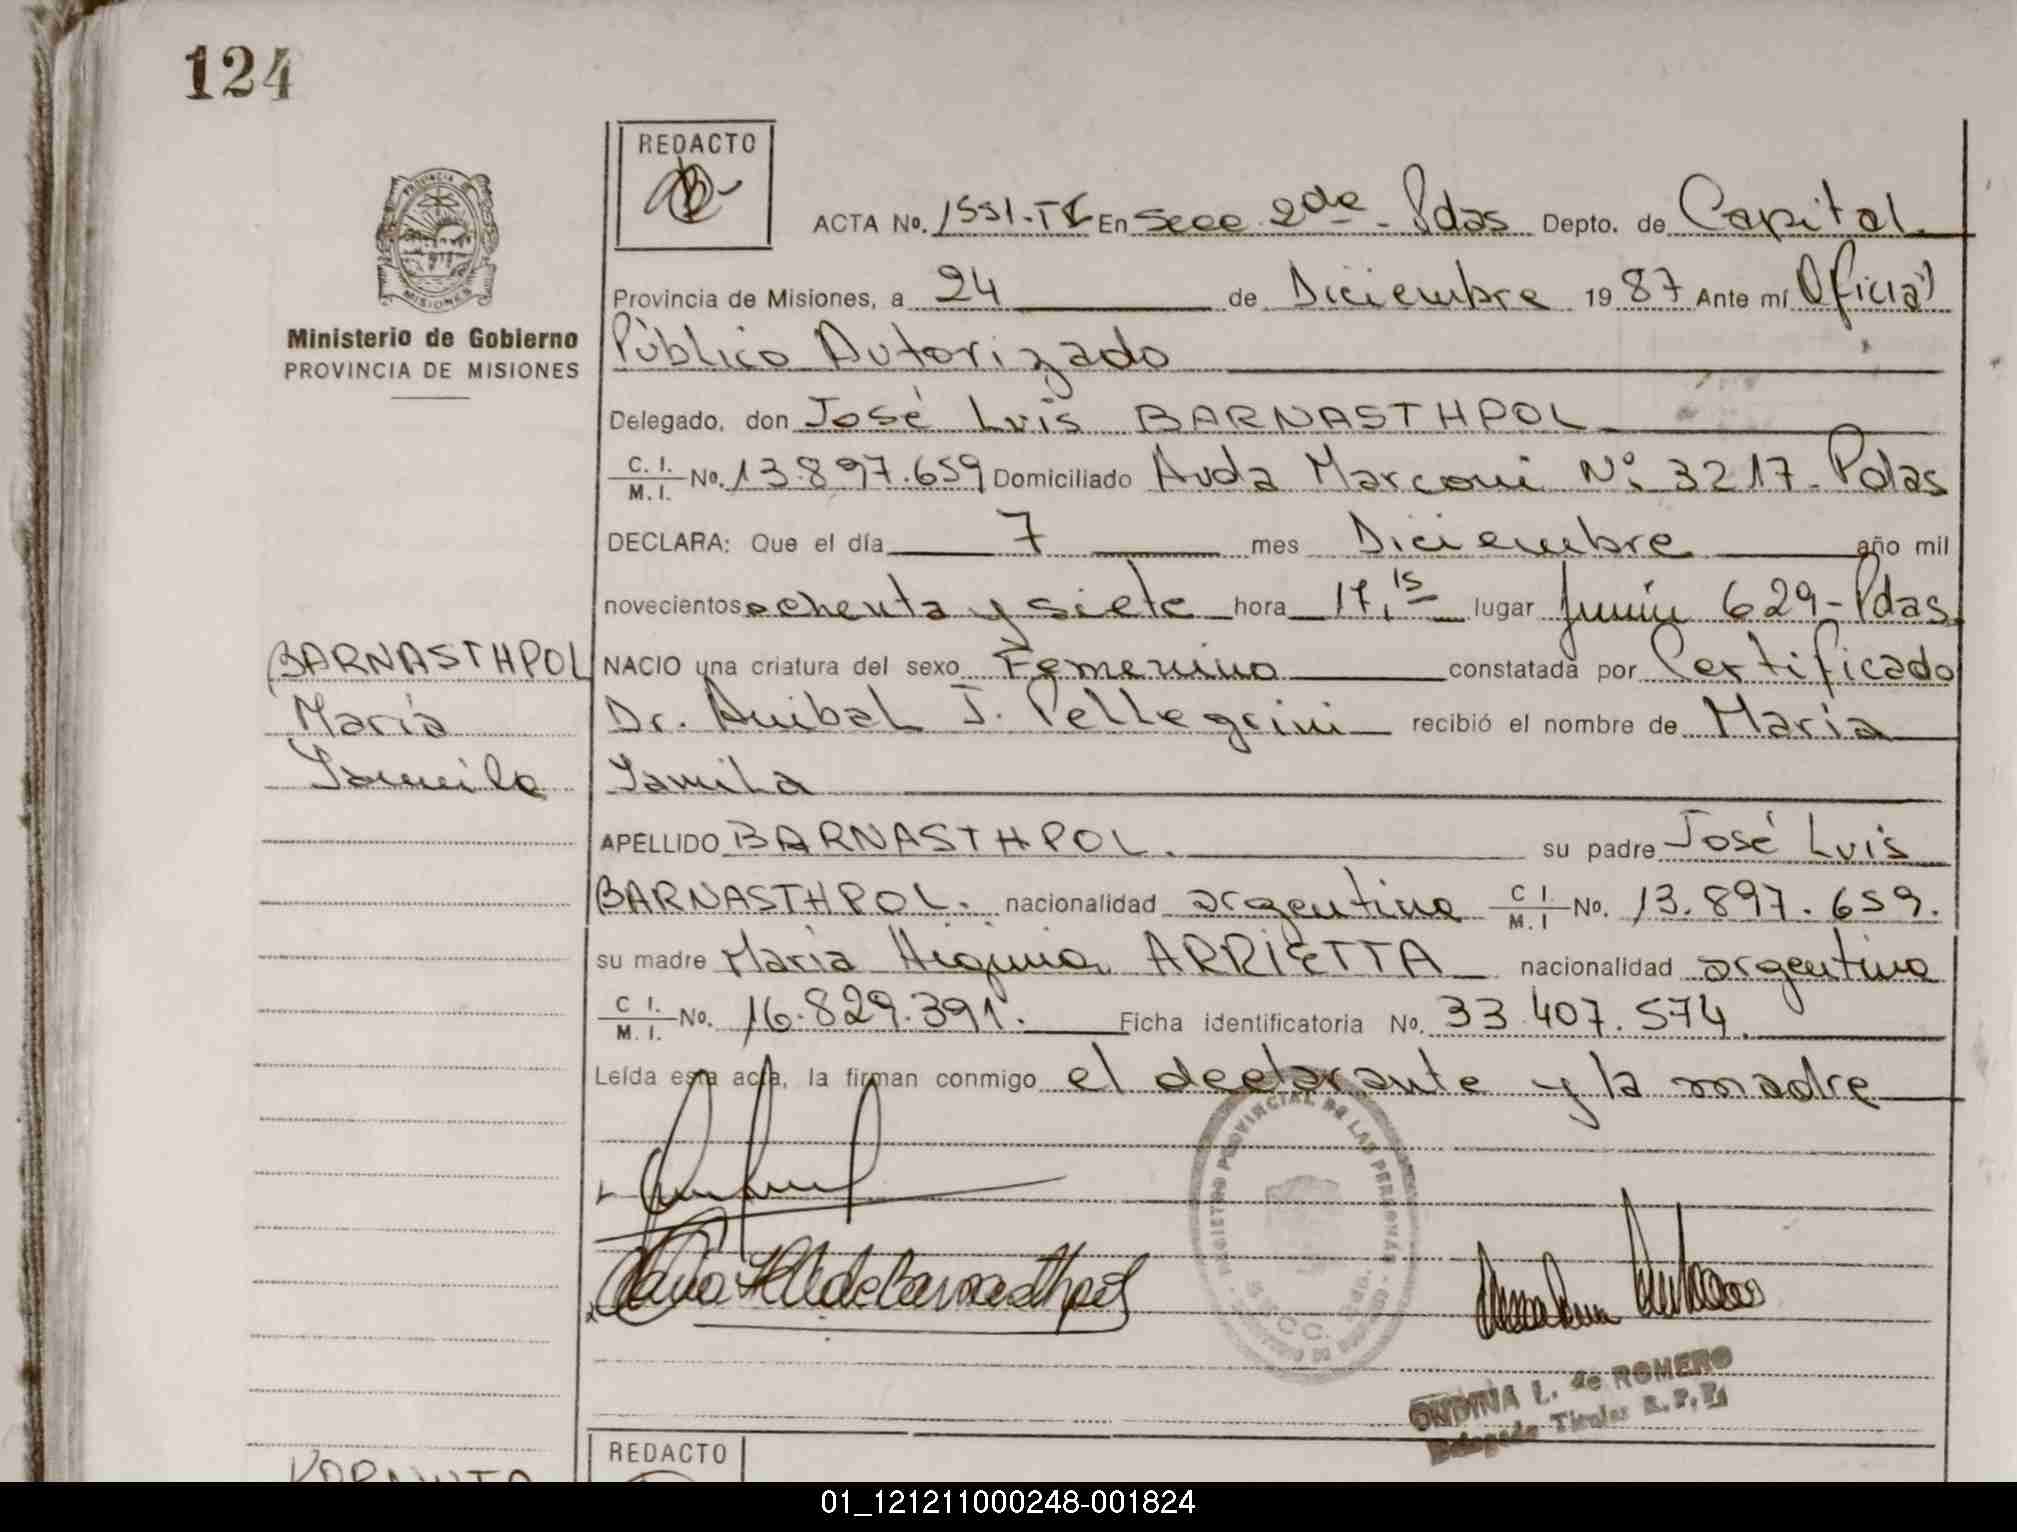 124
REDACTO
ACTA No. 1551-TI En Secc 2da - Pdas Depto. de Capital
PROVINCIA DE
MISIONES
Provincia de Misiones, a 24 de Diciembre 1987 Ante mí Oficial
Ministerio de Gobierno
PROVINCIA DE MISIONES
Público Autorizado
Delegado, don José Luis BARNASTHPOL
C. I. M. I. No. 13.897.659 Domiciliado Avda Marconi Nº 3217 - Pdas
DECLARA: Que el día 7 mes Diciembre año mil
novecientos ochenta y siete hora 17,15 lugar Junín 629 - Pdas
BARNASTHPOL
NACIO una criatura del sexo Femenino constatada por Certificado
María
Dr. Anibal J. Pellegrini recibió el nombre de María
Yamila
Yamila
APELLIDO BARNASTHPOL. su padre José Luis
BARNASTHPOL. nacionalidad argentina C I. M. I No. 13.897.659.
su madre María Higinia ARRIETTA nacionalidad argentina
C I. M. I. No. 16.829.391. Ficha identificatoria No. 33.407.574.
Leída esta acta, la firman conmigo el declarante y la madre
REGISTRO PROVINCIAL DE LAS PERSONAS
de Barnasthpol
ONDINA L. de ROMERO
Delegada Titular R.P.P.
REDACTO
01_121211000248-001824